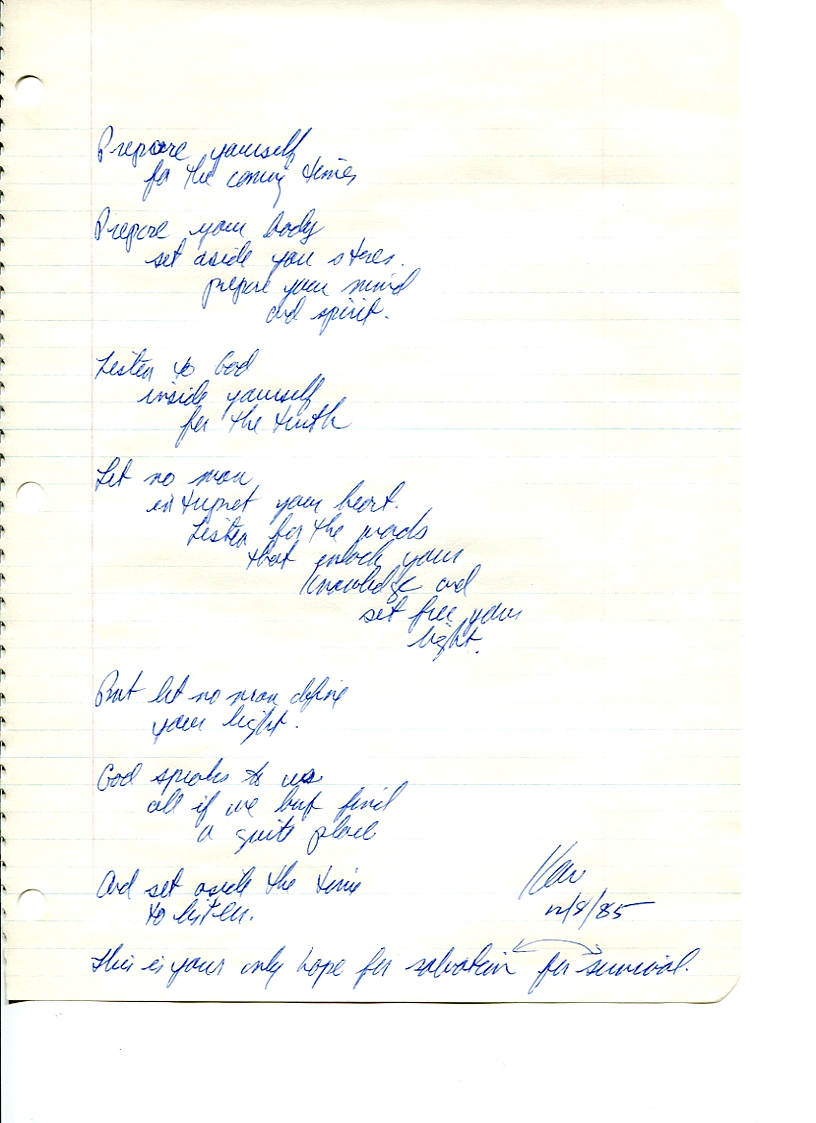 Prepare yourself
for the coming times
Prepare your body
set aside you stores.
prepare your mind
and spirit.
Listen to God
inside yourself
for the truth
Let no man
intrupret your heart.
Listen for the words
that unlock your
knowledge and
set free your
light.
But let no man define
your light.
God speaks to us
all if we but find
a quite place
And set aside the time
to listen.
12/8/85
This is your only hope for salvation for survival.